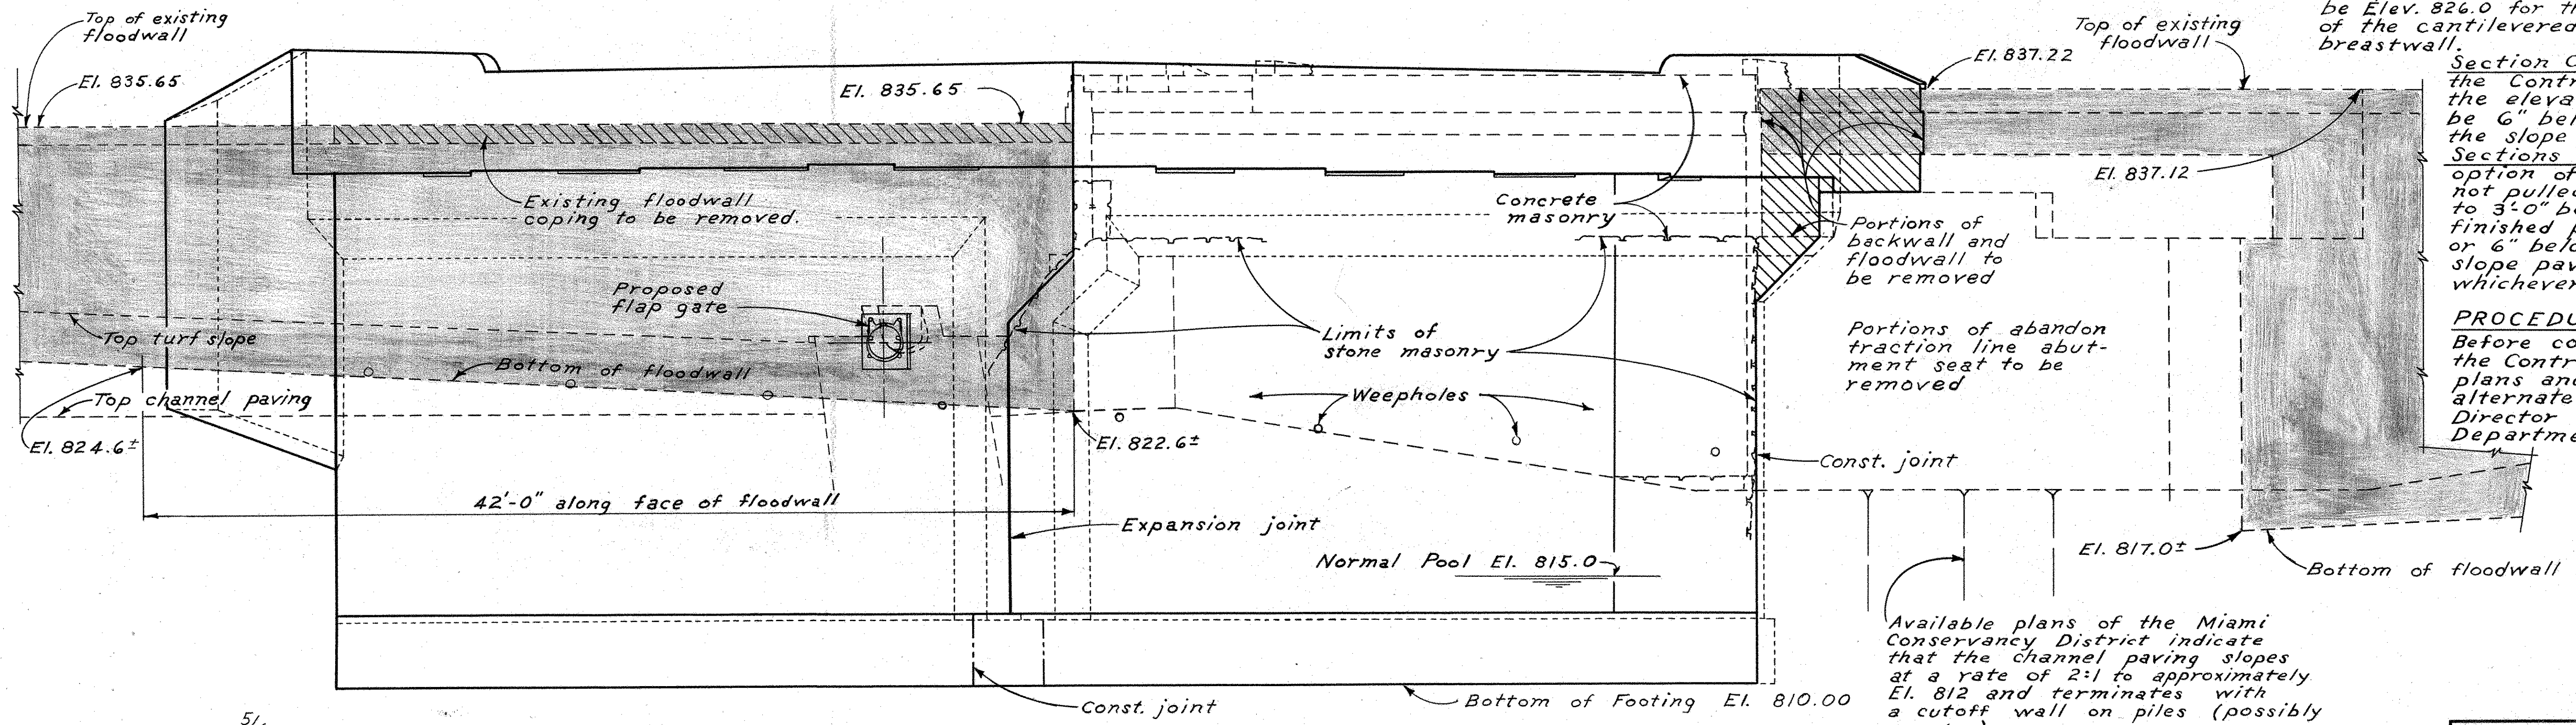 Top of existing
floodwall
El. 835.65
El. 835.65
Existing floodwall
coping to be removed.
Proposed
flap gate
Top turf slope
Bottom of floodwall
Top channel paving
El. 824.6±
El. 822.6±
42'-0" along face of floodwall
Expansion joint
Const. joint
51.
Concrete
masonry
Limits of
stone masonry
Weepholes
Normal Pool El. 815.0
Bottom of Footing El. 810.00
El. 837.22
Top of existing
floodwall
El. 837.12
Portions of
backwall and
floodwall to
be removed
Portions of abandon
traction line abut-
ment seat to be
removed
Const. joint
El. 817.0±
Bottom of floodwall
Available plans of the Miami
Conservancy District indicate
that the channel paving slopes
at a rate of 2:1 to approximately
El. 812 and terminates with
a cutoff wall on piles (possibly
be Elev. 826.0 for th
of the cantilevered
breastwall.
Section C
the Contr
the eleva
be 6" bel
the slope
Sections
option of
not pulled
to 3'-0" be
finished p
or 6" belo
slope pav
whichever
PROCEDU
Before co
the Contr
plans and
alternate
Director
Departme